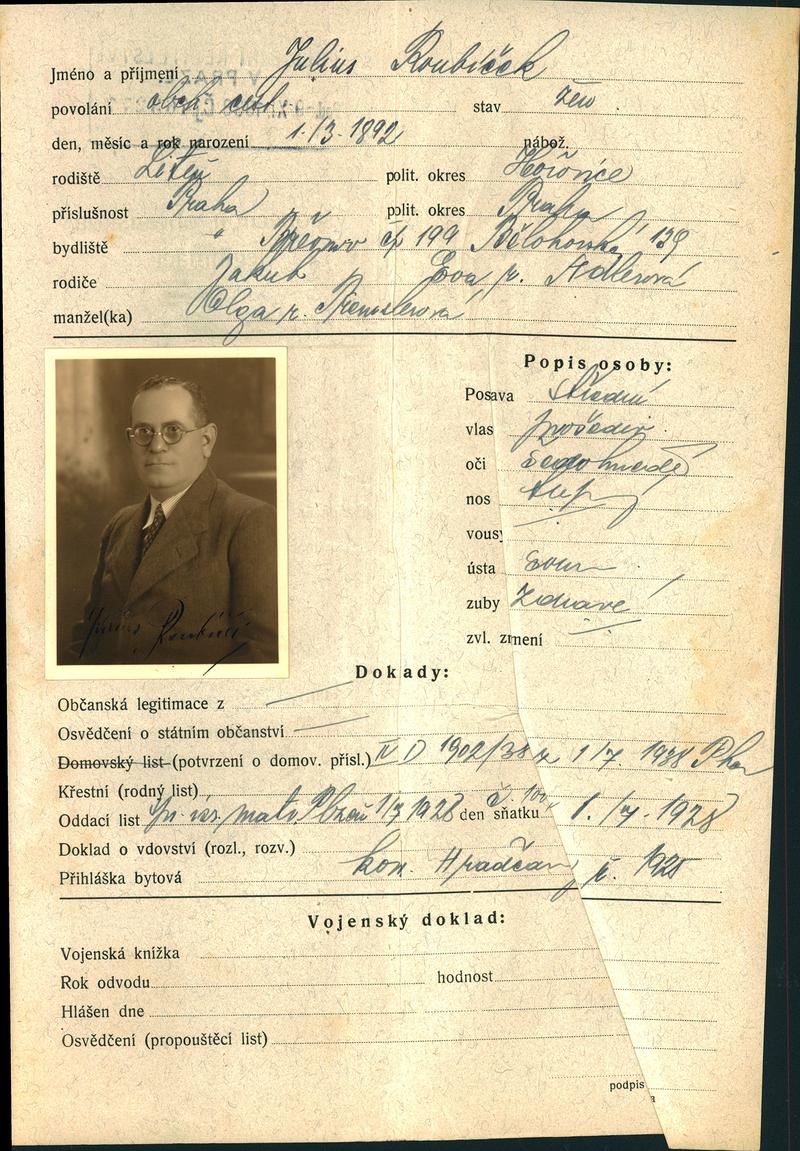 Jméno a příjmení Julius Roubíček
povolání obch. cest. stav žen.
den, měsíc a rok narození 1./3. 1892 nábož.
rodiště Liteň polit. okres Hořovice
příslušnost Praha polit. okres Praha
bydliště " Břevnov čp 199 Bělohorská 139
rodiče Jakub Eva r. Adlerová
manžel(ka) Olga r.
Popis osoby:
Posava střední
vlas prošediv.
oči šedohnědé
nos
vousy
ústa soum.
zuby zdravé
zvl. zmení
Julius Roubíček
Dokady:
Občanská legitimace z
Osvědčení o státním občanství
Domovský list (potvrzení o domov. přísl.) IV D 1902/38 z 1/7. 1938 Pha
Křestní (rodný list)
Oddací list žr. iz. mat. Plzeň 1/7 1928 den sňatku 1./7. 1928
Doklad o vdovství (rozl., rozv.)
Přihláška bytová kom. Hradčany r. 1928
Vojenský doklad:
Vojenská knížka
Rok odvodu hodnost
Hlášen dne
Osvědčení (propouštěcí list)
podpis